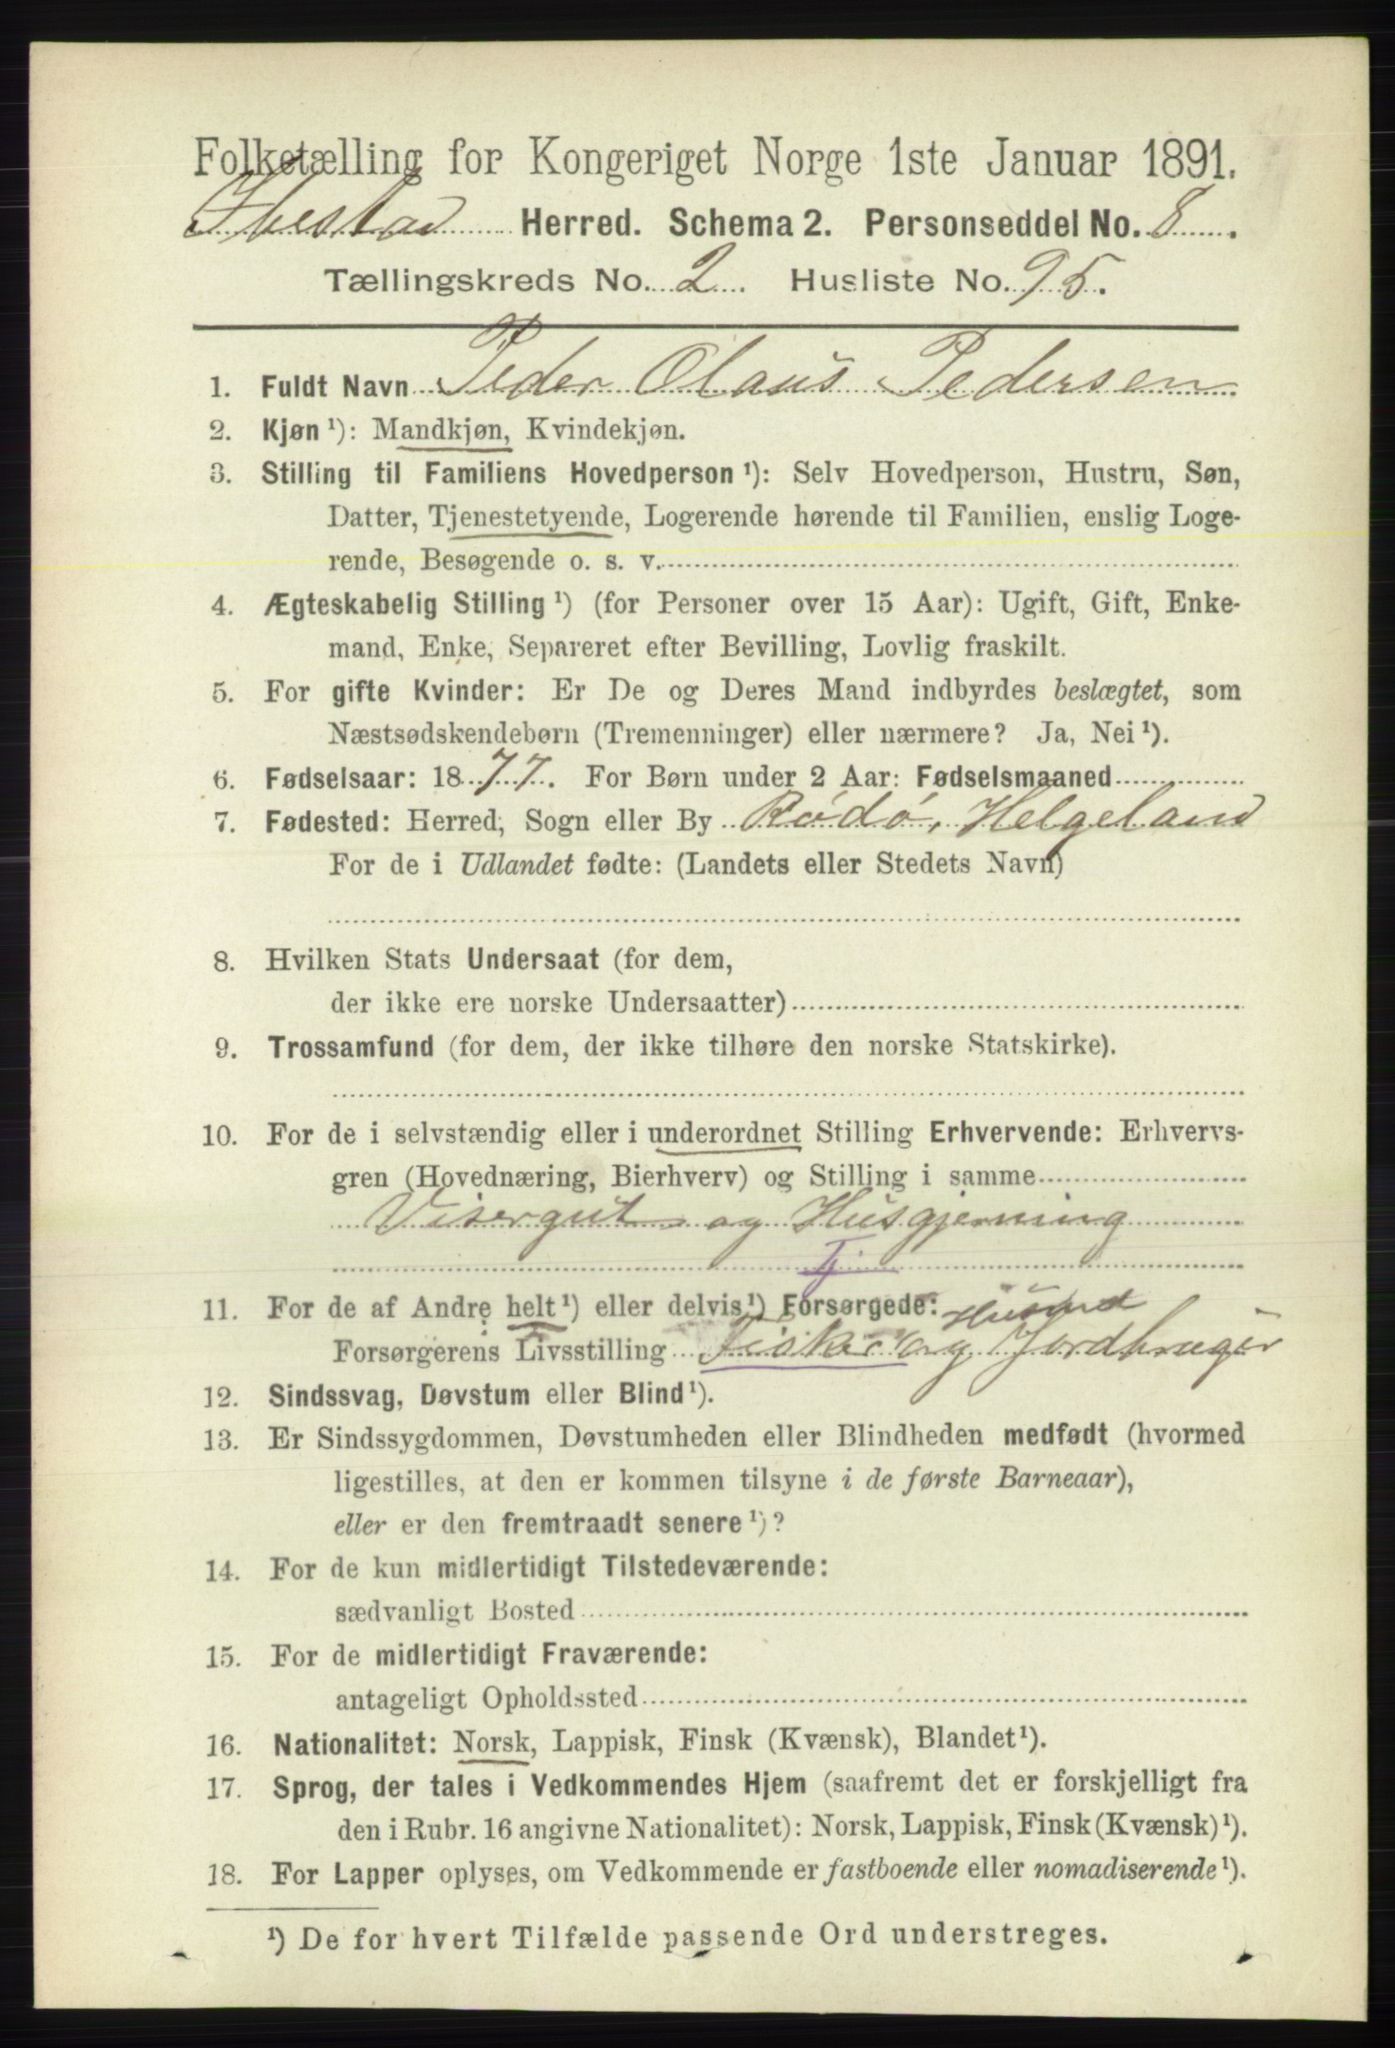 Folketælling for Kongeriget Norge 1ste Januar 1891.
Ibestad Herred. Schema 2. Personseddel No. 8.
Tællingskreds No. 2. Husliste No. 95.
1. Fuldt Navn Peder Olaus Pedersen
2. Kjøn ¹): Mandkjøn, Kvindekjøn.
3. Stilling til Familiens Hovedperson ¹): Selv Hovedperson, Hustru, Søn,
Datter, Tjenestetyende, Logerende hørende til Familien, enslig Loge-
rende, Besøgende o. s. v.
4. Ægteskabelig Stilling ¹) (for Personer over 15 Aar): Ugift, Gift, Enke-
mand, Enke, Separeret efter Bevilling, Lovlig fraskilt.
5. For gifte Kvinder: Er De og Deres Mand indbyrdes beslægtet, som
Næstsødskendebørn (Tremenninger) eller nærmere? Ja, Nei ¹).
6. Fødselsaar: 1877. For Børn under 2 Aar: Fødselsmaaned
7. Fødested: Herred, Sogn eller By Rødø, Helgeland
For de i Udlandet fødte: (Landets eller Stedets Navn)
8. Hvilken Stats Undersaat (for dem,
der ikke ere norske Undersaatter)
9. Trossamfund (for dem, der ikke tilhøre den norske Statskirke).
10. For de i selvstændig eller i underordnet Stilling Erhvervende: Erhvervs-
gren (Hovednæring, Bierhverv) og Stilling i samme
Visergut og Husgjerning
Tj.
11. For de af Andre helt ¹) eller delvis ¹) Forsørgede:
Forsørgerens Livsstilling Fisker og Jordbruger
12. Sindssvag, Døvstum eller Blind ¹).
13. Er Sindssygdommen, Døvstumheden eller Blindheden medfødt (hvormed
ligestilles, at den er kommen tilsyne i de første Barneaar),
eller er den fremtraadt senere ¹)?
14. For de kun midlertidigt Tilstedeværende:
sædvanligt Bosted
15. For de midlertidigt Fraværende:
antageligt Opholdssted
16. Nationalitet: Norsk, Lappisk, Finsk (Kvænsk), Blandet ¹).
17. Sprog, der tales i Vedkommendes Hjem (saafremt det er forskjelligt fra
den i Rubr. 16 angivne Nationalitet): Norsk, Lappisk, Finsk (Kvænsk) ¹).
18. For Lapper oplyses, om Vedkommende er fastboende eller nomadiserende ¹).
¹) De for hvert Tilfælde passende Ord understreges.